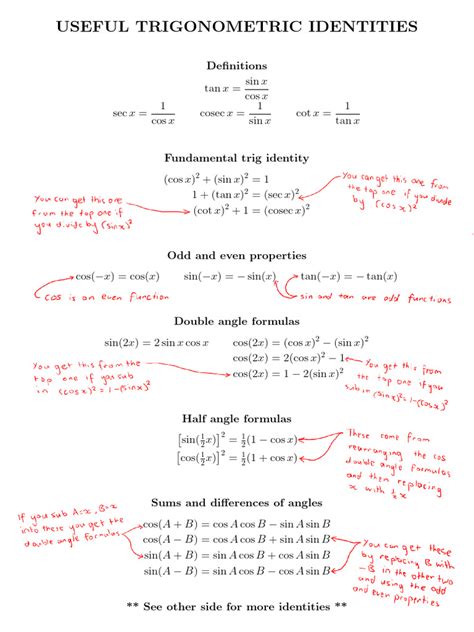 USEFUL TRIGONOMETRIC IDENTITIES
Definitions
tan x = sin x / cos x
sec x = 1 / cos x    cosec x = 1 / sin x    cot x = 1 / tan x
Fundamental trig identity
(cos x)² + (sin x)² = 1
1 + (tan x)² = (sec x)²
(cot x)² + 1 = (cosec x)²
You can get this one from
the top one if you divide
by (cos x)²
You can get this one
from the top one if
you divide by (sin x)²
Odd and even properties
cos(−x) = cos(x)    sin(−x) = − sin(x)    tan(−x) = − tan(x)
cos is an even function
sin and tan are odd functions
Double angle formulas
sin(2x) = 2 sin x cos x    cos(2x) = (cos x)² − (sin x)²
cos(2x) = 2(cos x)² − 1
cos(2x) = 1 − 2(sin x)²
You get this from the
top one if you sub
in (cos x)² = 1−(sin x)²
You get this from
the top one if you
sub in (sin x)² = 1−(cos x)²
Half angle formulas
[sin(½x)]² = ½(1 − cos x)
[cos(½x)]² = ½(1 + cos x)
These come from
rearranging the cos
double angle formulas
and then replacing
x with ½x
Sums and differences of angles
cos(A + B) = cos A cos B − sin A sin B
cos(A − B) = cos A cos B + sin A sin B
sin(A + B) = sin A cos B + cos A sin B
sin(A − B) = sin A cos B − cos A sin B
If you sub A=x, B=x
into these you get the
double angle formulas
You can get these
by replacing B with
−B in the other two
and using the odd
and even properties
** See other side for more identities **